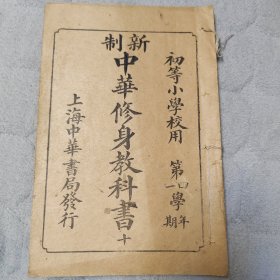 新制
初等小學校用
第四一學年期
中華修身教科書 十
上海中華書局發行